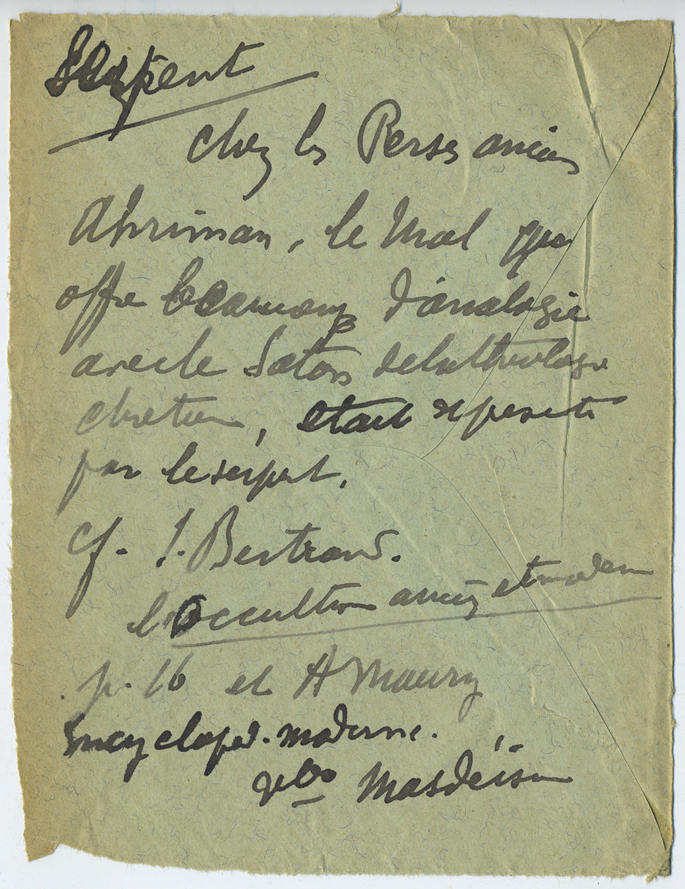 Serpent
chez les Perses anciens
Ahriman, le Mal qui
offre beaucoup d'analogie
avec le Satan de la theologie
chretien, etait represente
par le serpent.
cf. J. Bertrand.
l'Occultisme ancien et moderne
p. 16 et A Maury
Encycloped. moderne.
vbo Masdeisme